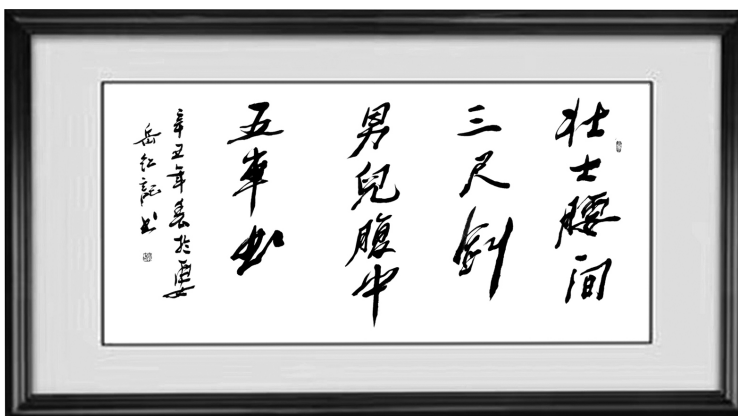 壮士腰间
三尺剑
男兒腹中
五車书
辛丑年春於西安
岳红記书